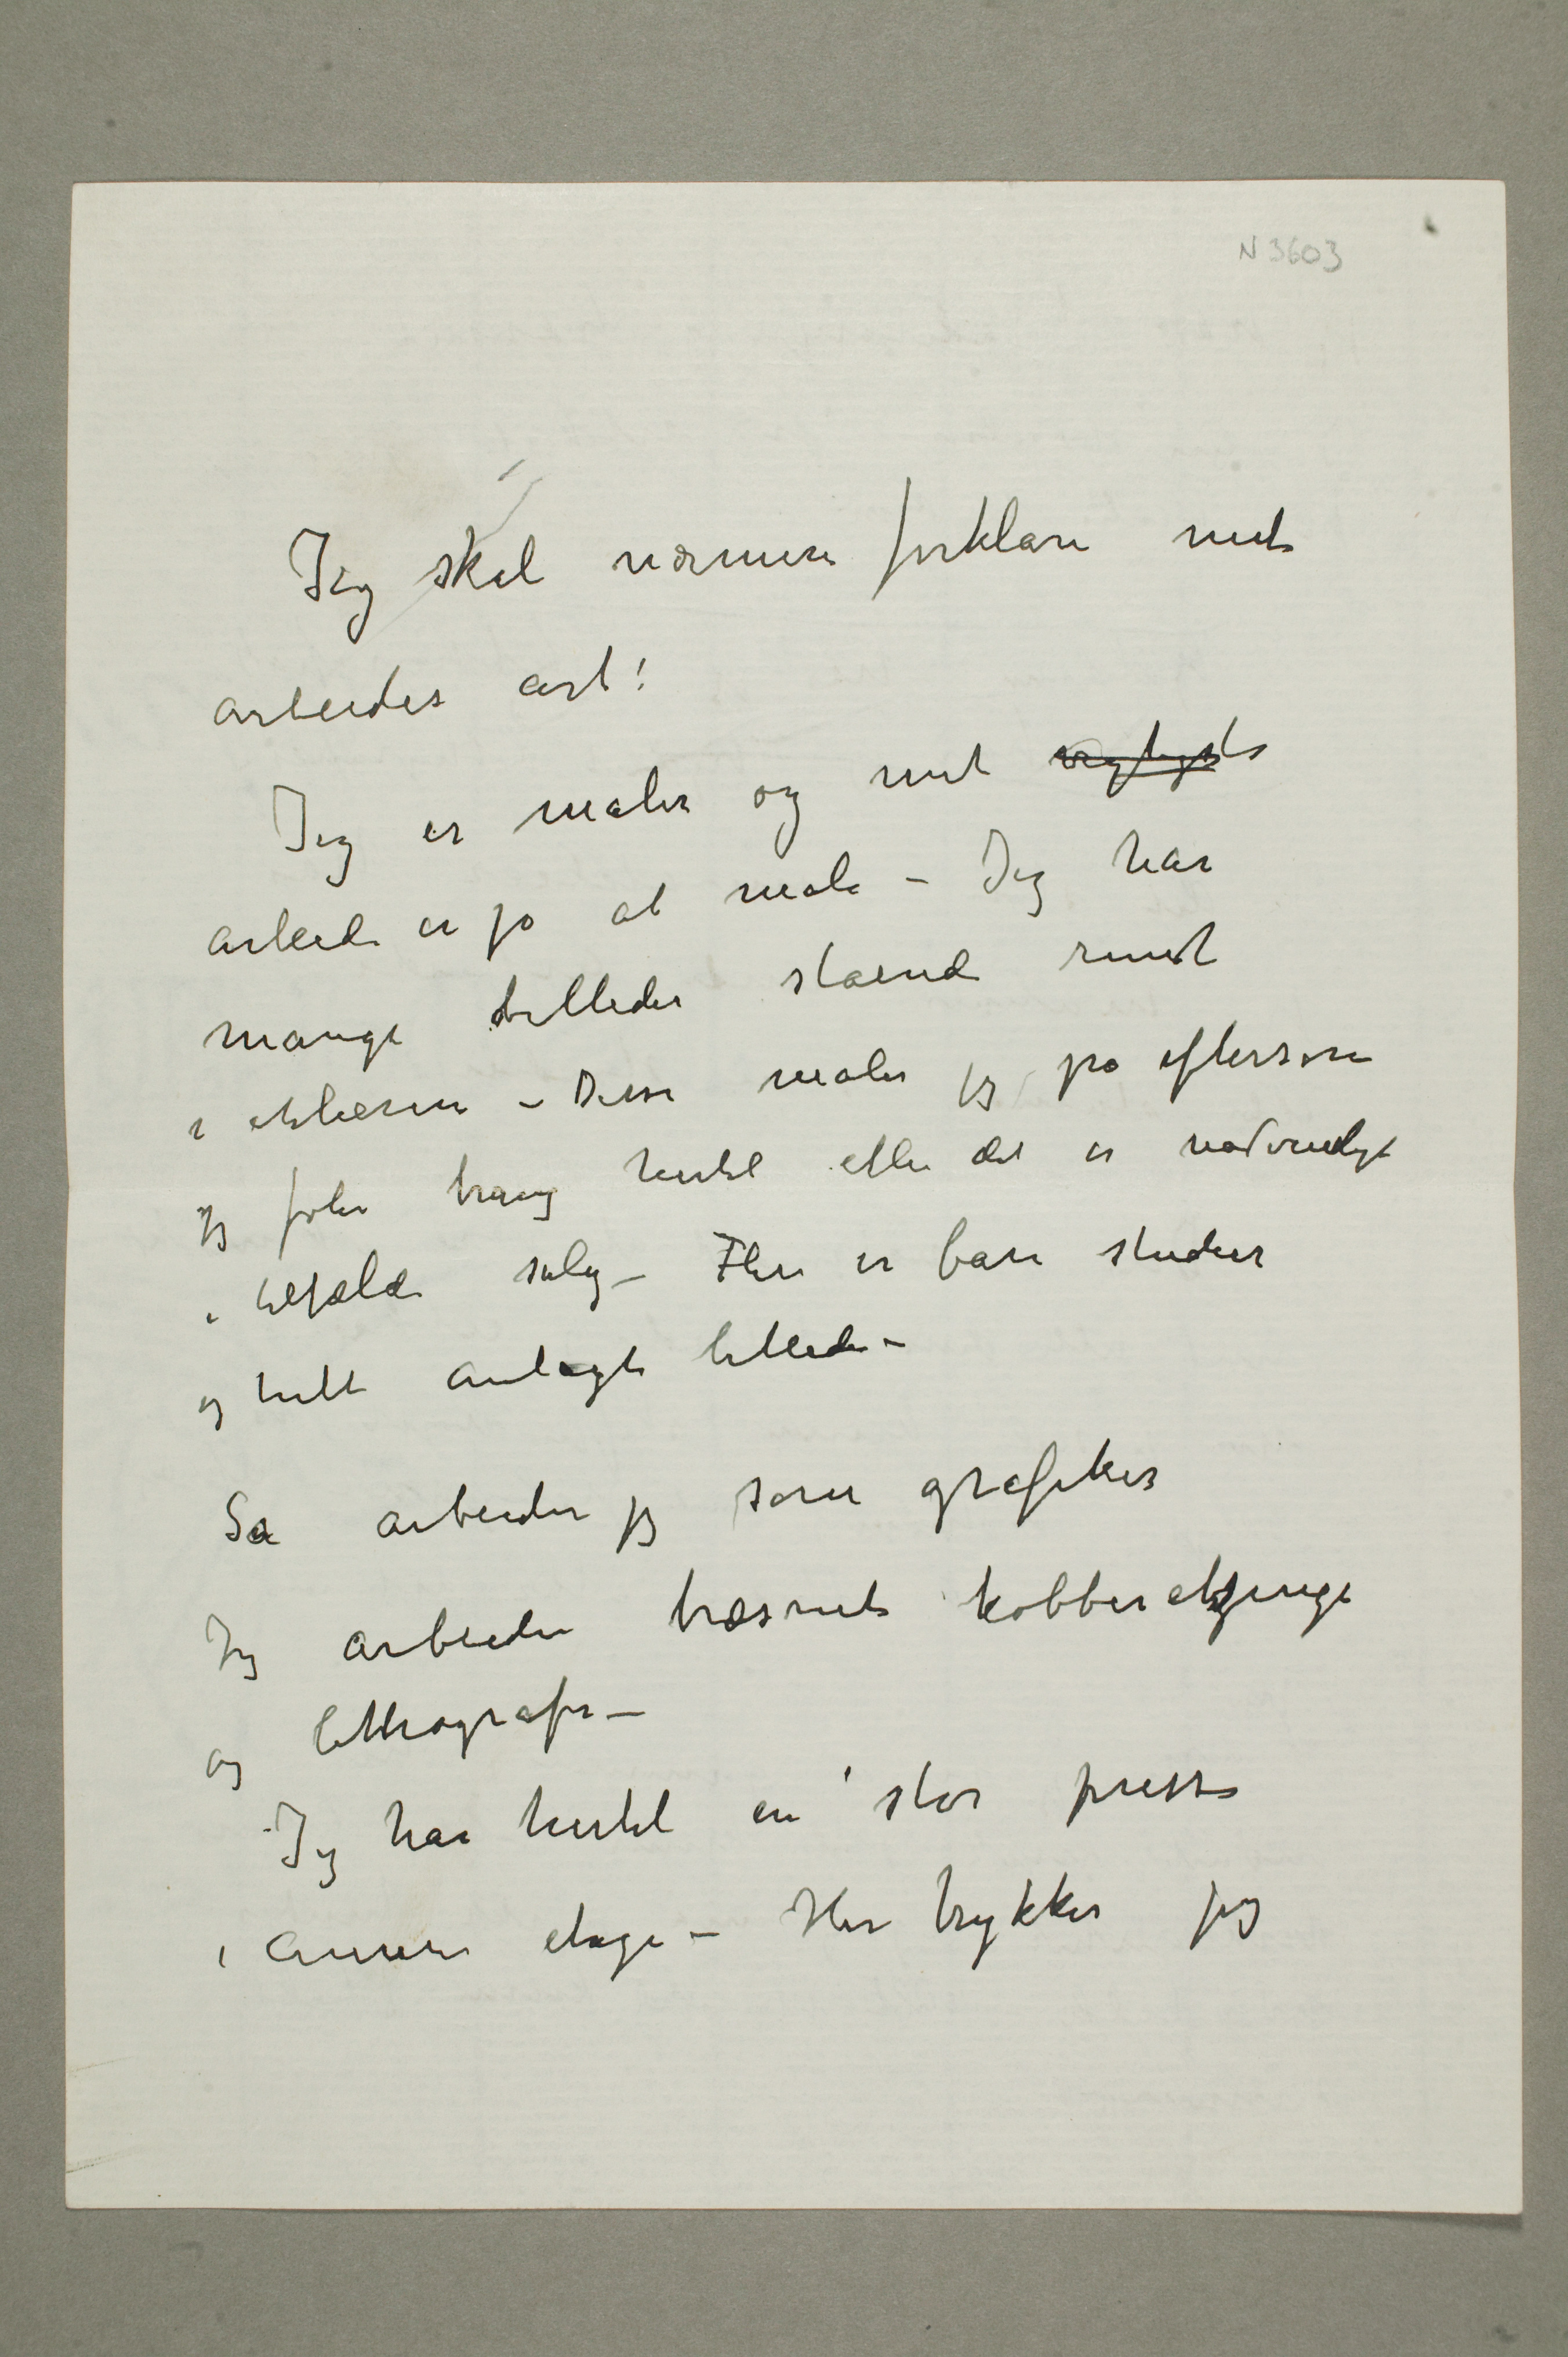 N 3603
Jeg skal nærmere forklare mit
arbeides art!
Jeg er maler og mit vigtigste
arbeide er jo at male – Jeg har
mange billeder stående rundt
i atelierene – Disse maler jeg på eftersom
jeg føler trang hertil eller det er nødvendigt
i tilfælde salg – Flere er bare studier
og helt anlagte billeder –
Så arbeider jeg som grafiker
Jeg arbeider træsnit kobberætzninge
og lithografier –
Jeg har hertil en stor presse
i annen etage – Her trykker jeg